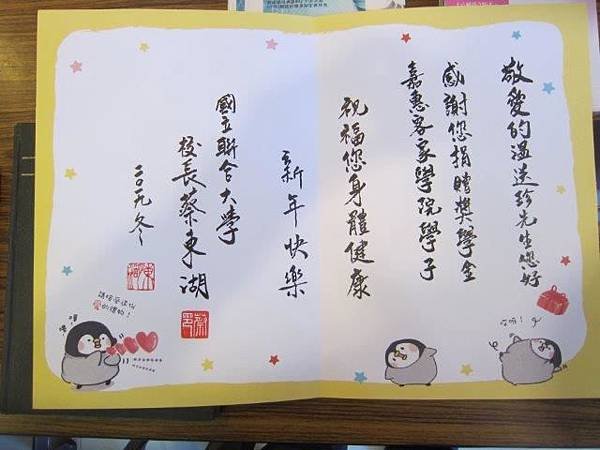 敬愛的溫送珍先生您好
感謝您捐贈獎學金
嘉惠客家學院學子
祝福您身體健康
新年快樂
國立聯合大學
校長蔡東湖
二〇一九冬
請接受這份
愛的禮物！
嘿嘿
哎呀！